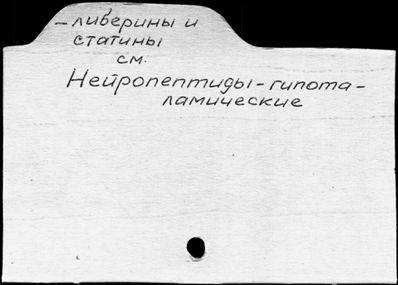 – либерины и
статины
см.
Нейропептиды – гипота-
ламические